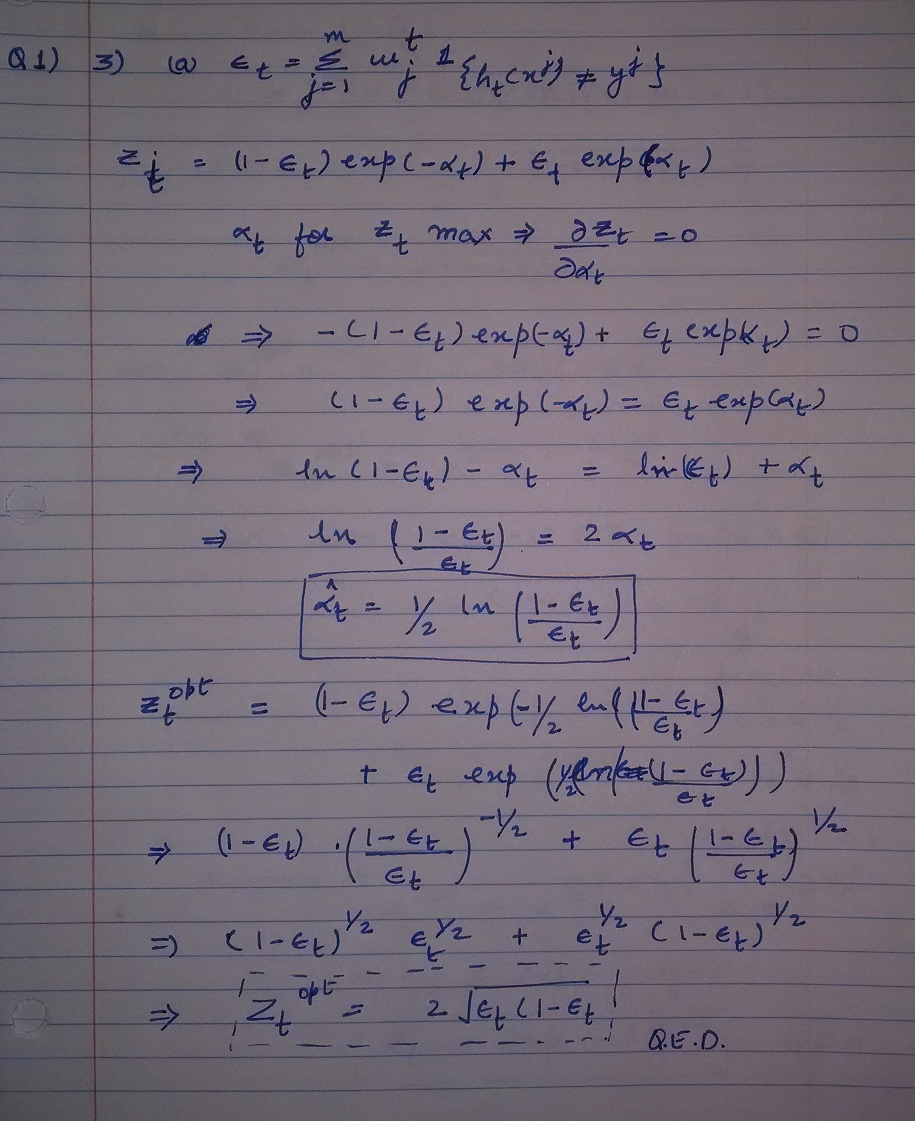 Q1) 3) (a) ϵ_t = Σ_{j=1}^{m} w_j^t 1{h_t(x^j) ≠ y^j}
z_t = (1-ϵ_t) exp(-α_t) + ϵ_t exp(α_t)
α_t for z_t max ⇒ ∂z_t/∂α_t = 0
⇒ -(1-ϵ_t) exp(-α_t) + ϵ_t exp(α_t) = 0
⇒ (1-ϵ_t) exp(-α_t) = ϵ_t exp(α_t)
⇒ ln(1-ϵ_t) - α_t = ln(ϵ_t) + α_t
⇒ ln((1-ϵ_t)/ϵ_t) = 2α_t
α̂_t = 1/2 ln((1-ϵ_t)/ϵ_t)
z_t^opt = (1-ϵ_t) exp(-1/2 ln((1-ϵ_t)/ϵ_t)
+ ϵ_t exp(1/2(ln((1-ϵ_t)/ϵ_t)))
⇒ (1-ϵ_t) · ((1-ϵ_t)/ϵ_t)^{-1/2} + ϵ_t ((1-ϵ_t)/ϵ_t)^{1/2}
⇒ (1-ϵ_t)^{1/2} ϵ_t^{1/2} + ϵ_t^{1/2} (1-ϵ_t)^{1/2}
⇒ Z_t^opt = 2√(ϵ_t(1-ϵ_t
Q.E.D.